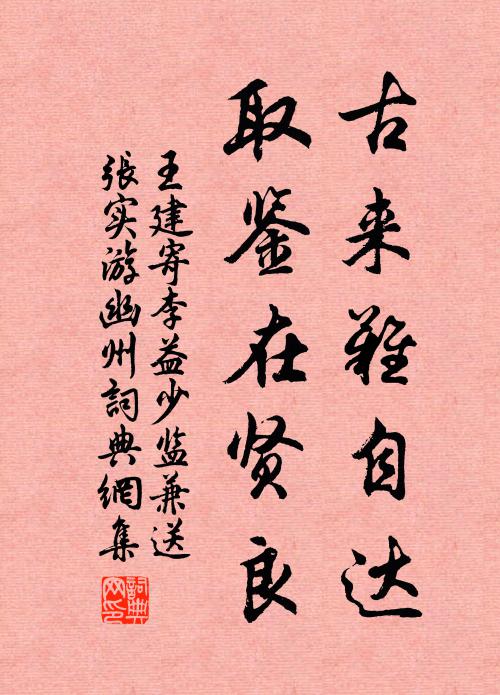 古来难自达
取鉴在贤良
王建寄李益少监兼送
張实游幽州詞典網集
詞典网印